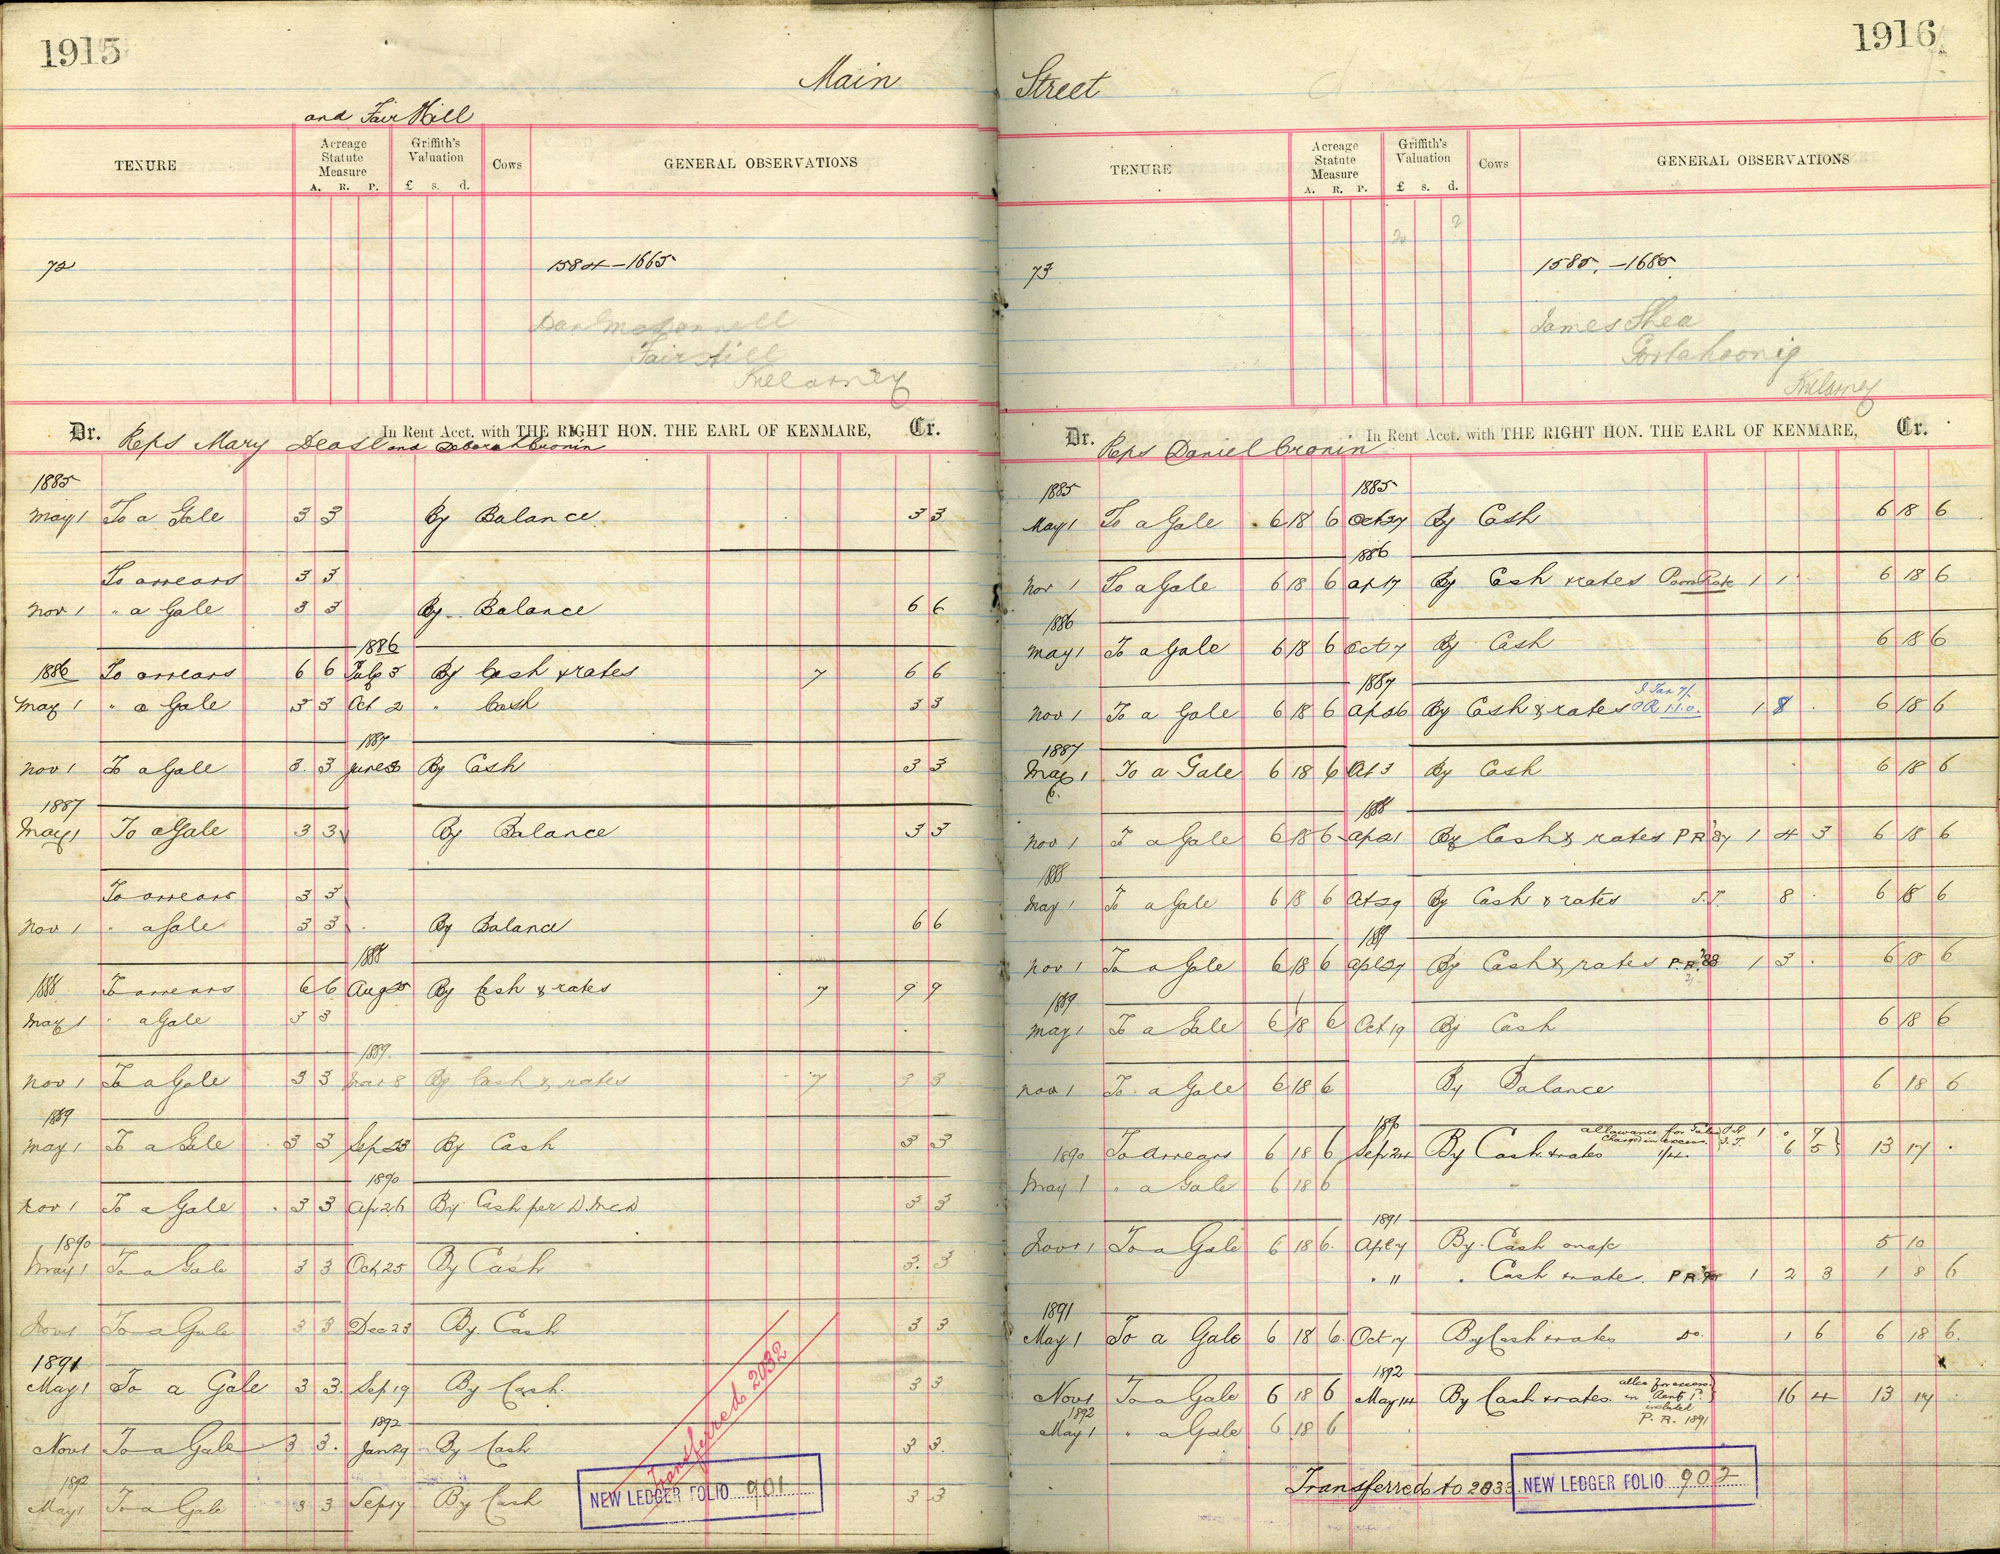 1915
Main
and Fair Hill
TENURE
Acreage Statute Measure
A. R. P.
Griffith's Valuation
£ s. d.
Cows
GENERAL OBSERVATIONS
72 1584-1665
Fair Hill
Killarney
Dr. In Rent Acct. with THE RIGHT HON. THE EARL OF KENMARE, Cr.
Reps Mary Dease and Deborah Cronin
1885
May 1 To a Gale 3 3 By Balance 3 3
To arrears 3 3
Nov 1 " a Gale 3 3 By Balance 6 6
1886
1886 To arrears 6 6 July 3 By Cash & rates 7 6 6
May 1 " a Gale 3 3 Oct 2 " Cash 3 3
1887
Nov 1 To a Gale 3 3 June 8 By Cash 3 3
1887
May 1 To a Gale 3 3 By Balance 3 3
To arrears 3 3
Nov 1 " a Gale 3 3 By Balance 6 6
1888
1888 To arrears 6 6 Aug 25 By Cash & rates 7 9 9
May 1 " a Gale 3 3
1889
Nov 1 To a Gale 3 3 Mar 8 By Cash & rates 7 3 3
1889
May 1 To a Gale 3 3 Sep 23 By Cash 3 3
1890
Nov 1 To a Gale 3 3 Apr 26 By Cash per D. McD 3 3
1890
May 1 To a Gale 3 3 Oct 25 By Cash 3 3
Nov 1 To a Gale 3 3 Dec 23 By Cash 3 3
1891
May 1 To a Gale 3 3 Sep 19 By Cash 3 3
1892
Nov 1 To a Gale 3 3 Jan 29 By Cash 3 3
1892
May 1 To a Gale 3 3 Sep 17 By Cash 3 3
Transferred 2032
NEW LEDGER FOLIO 901
1916
Street
TENURE
Acreage Statute Measure
A. R. P.
Griffith's Valuation
£ s. d.
Cows
GENERAL OBSERVATIONS
73 1585.-1685
James Shea
Killarney
Dr. In Rent Acct. with THE RIGHT HON. THE EARL OF KENMARE, Cr.
Reps Daniel Cronin
1885 1885
May 1 To a Gale 6 18 6 Oct 27 By Cash 6 18 6
1886
Nov 1 To a Gale 6 18 6 Ap 17 By Cash & rates Poor Rate 1 1 6 18 6
1886
May 1 To a Gale 6 18 6 Oct 7 By Cash 6 18 6
1887
Nov 1 To a Gale 6 18 6 Ap 26 By Cash & rates 1 8 6 18 6
1887
May 1 To a Gale 6 18 6 Oct 3 By Cash 6 18 6
1888
Nov 1 To a Gale 6 18 6 Ap 21 By Cash & rates PR '87 1 4 3 6 18 6
1888
May 1 To a Gale 6 18 6 Oct 29 By Cash & rates I.T. 8 6 18 6
1889
Nov 1 To a Gale 6 18 6 Apl 27 By Cash & rates P.R. '88 1 3 6 18 6
1889
May 1 To a Gale 6 18 6 Oct 19 By Cash 6 18 6
Nov 1 To a Gale 6 18 6 By Balance 6 18 6
1890
1890 To arrears 6 18 6 Sep 24 By Cash & rates allowance for Charged in excess 1/4. P.R. 1 0 7 I.T. 6 5 13 17
May 1 " a Gale 6 18 6
1891
Nov 1 To a Gale 6 18 6 Apl 7 By Cash on a/c 5 10
" " " Cash & rate PR 1 2 3 1 8 6
1891
May 1 To a Gale 6 18 6 Oct 17 By Cash & rates Do. 1 6 6 18 6
1892
Nov 1 To a Gale 6 18 6 May 14 By Cash & rates in Rent included P.R. 1891 16 4 13 17
1892
May 1 " a Gale 6 18 6
Transferred to 2033
NEW LEDGER FOLIO 902